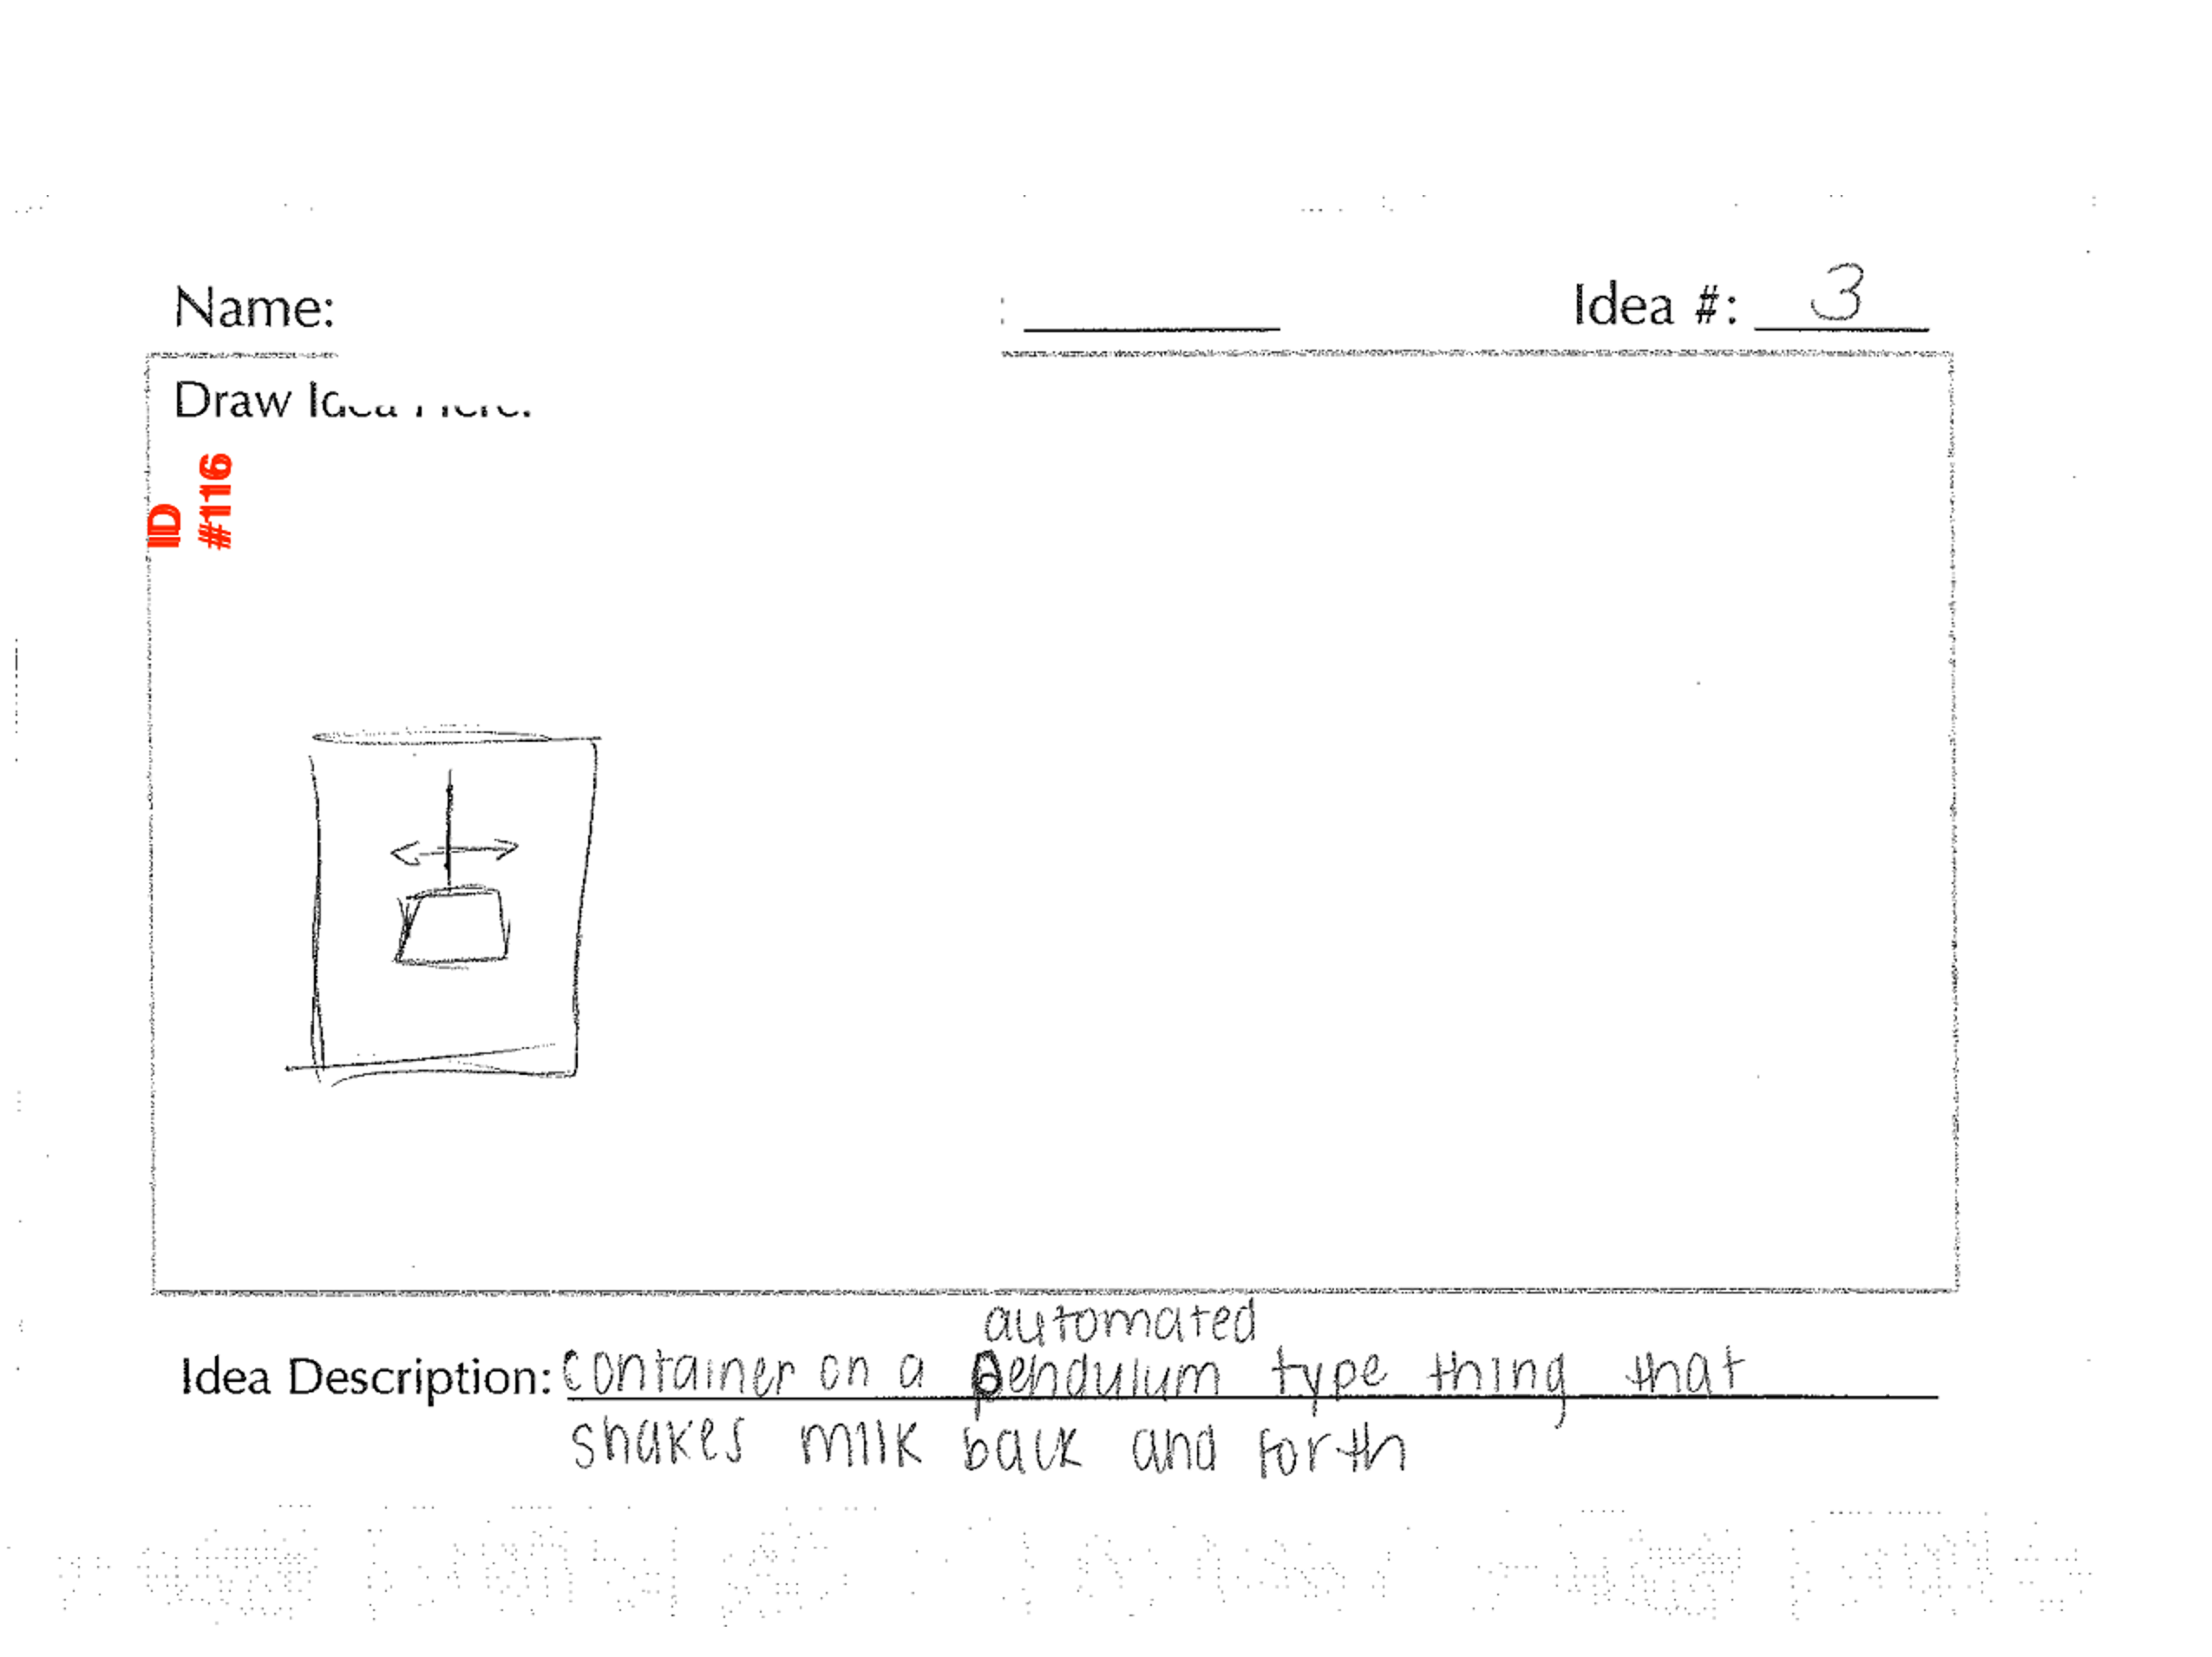 Name:
Idea #: 3
Draw
ID
#116
automated
Idea Description: container on a pendulum type thing that
shakes milk back and forth